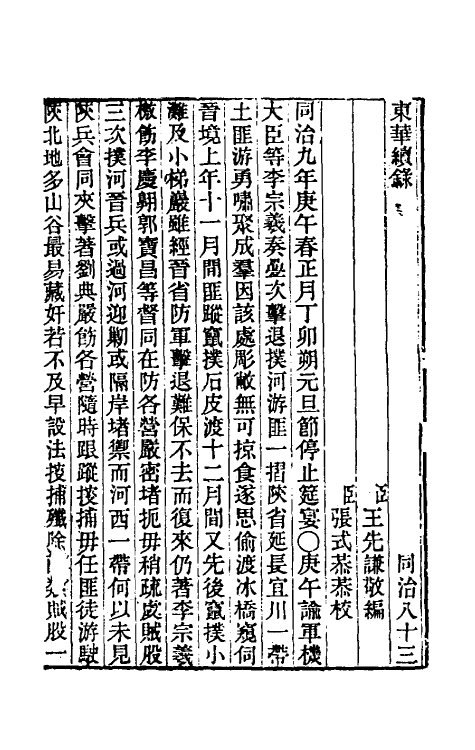 東華續錄 同治八十三
臣王先謙敬編
臣張式恭恭校
同治九年庚午春正月丁卯朔元旦節停止筵宴〇庚午諭軍機
大臣等李宗羲奏疊次擊退撲河游匪一摺陝省延長宜川一帶
土匪游勇嘯聚成羣因該處彫敝無可掠食遂思偷渡冰橋窺伺
晉境上年十一月間匪蹤竄撲石皮渡十二月間又先後竄撲小
灘及小梯巖雖經晉省防軍擊退難保不去而復來仍著李宗羲
檄飭李慶翱郭寶昌等督同在防各營嚴密堵扼毋稍疏虞賊股
三次撲河晉兵或過河迎勦或隔岸堵禦而河西一帶何以未見
陝兵會同夾擊著劉典嚴飭各營隨時跟蹤搜捕毋任匪徒游駛
陝北地多山谷最易藏奸若不及早設法搜捕殲除 賊股一